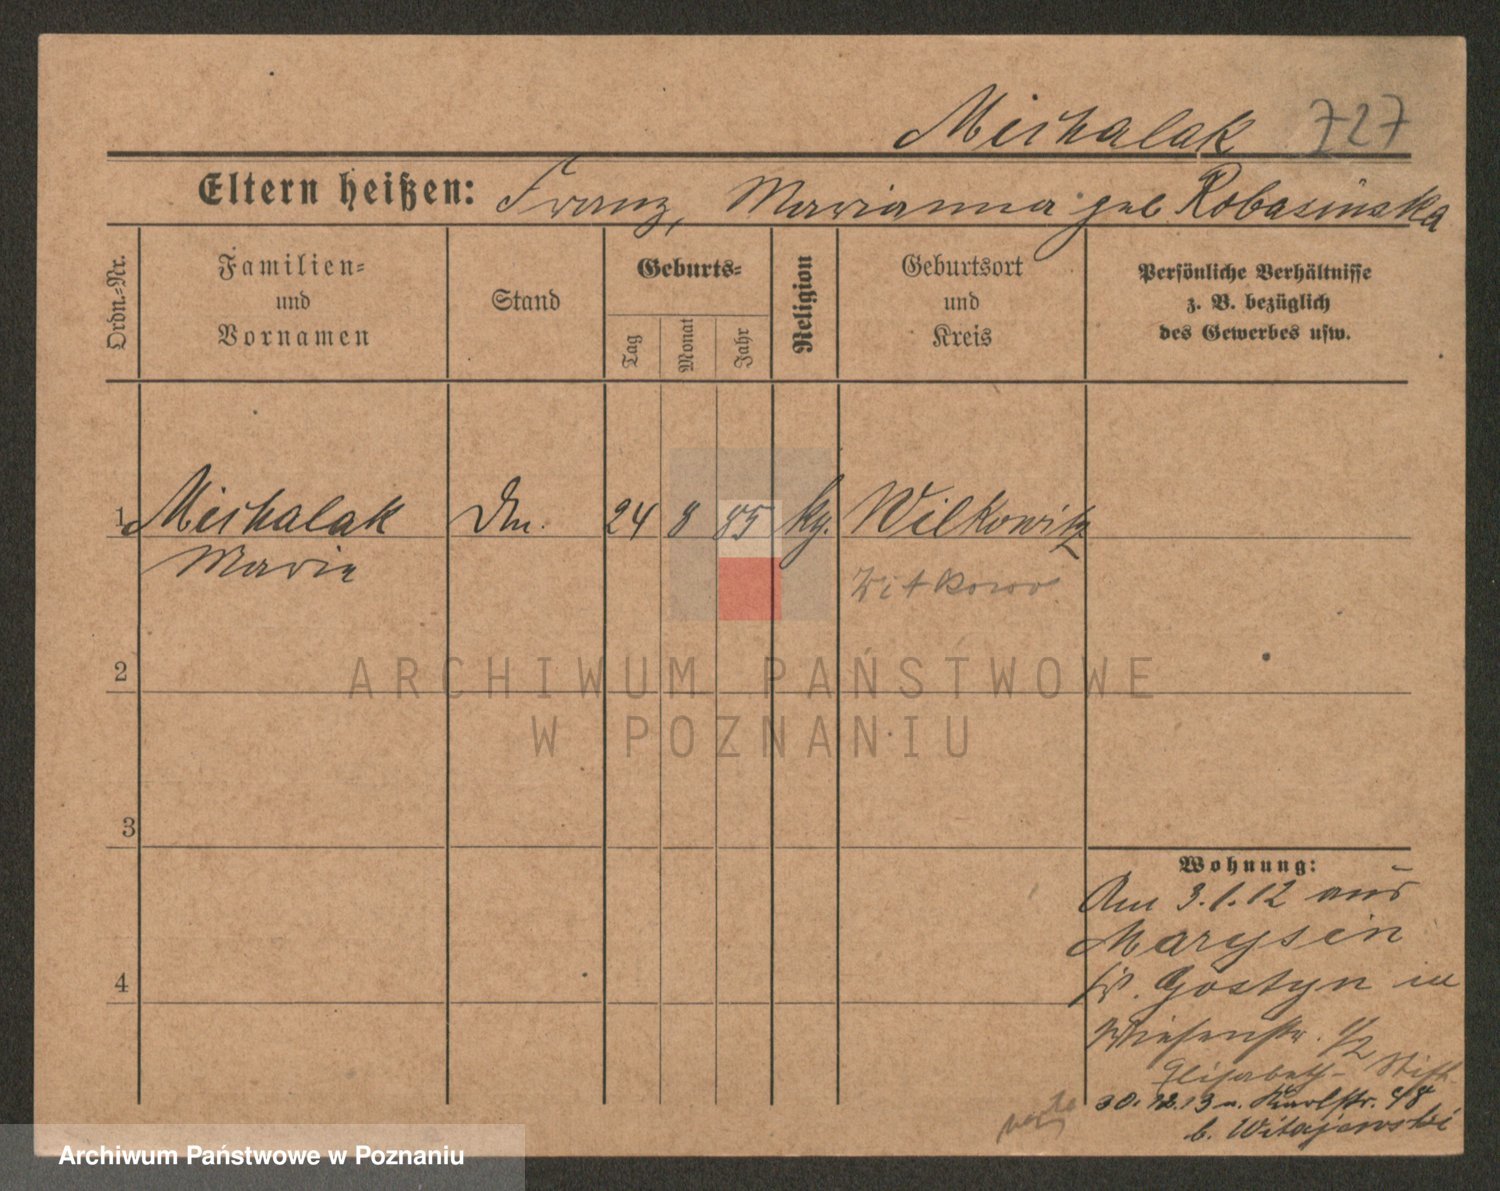 Michalak 727
Eltern heißen: Franz, Marianna geb Robasinska
Ordn.-Nr.
Familien-
und
Vornamen
Stand
Geburts-
Tag
Monat
Jahr
Religion
Geburtsort
und
Kreis
Persönliche Verhältnisse
z. B. bezüglich
des Gewerbes usw.
1 Michalak 24 8 85 kg. Wilkowitz
Marie Witkowo
2
ARCHIWUM PAŃSTWOWE
W POZNANIU
3
Wohnung:
Am 3.1.12 aus
Marysin
4
Gostyn in
Wiesenstr. 1/2
Elisabeth-Stift
30.12.13 n. Karlstr. 48
b. Witajewski
Archiwum Państwowe w Poznaniu